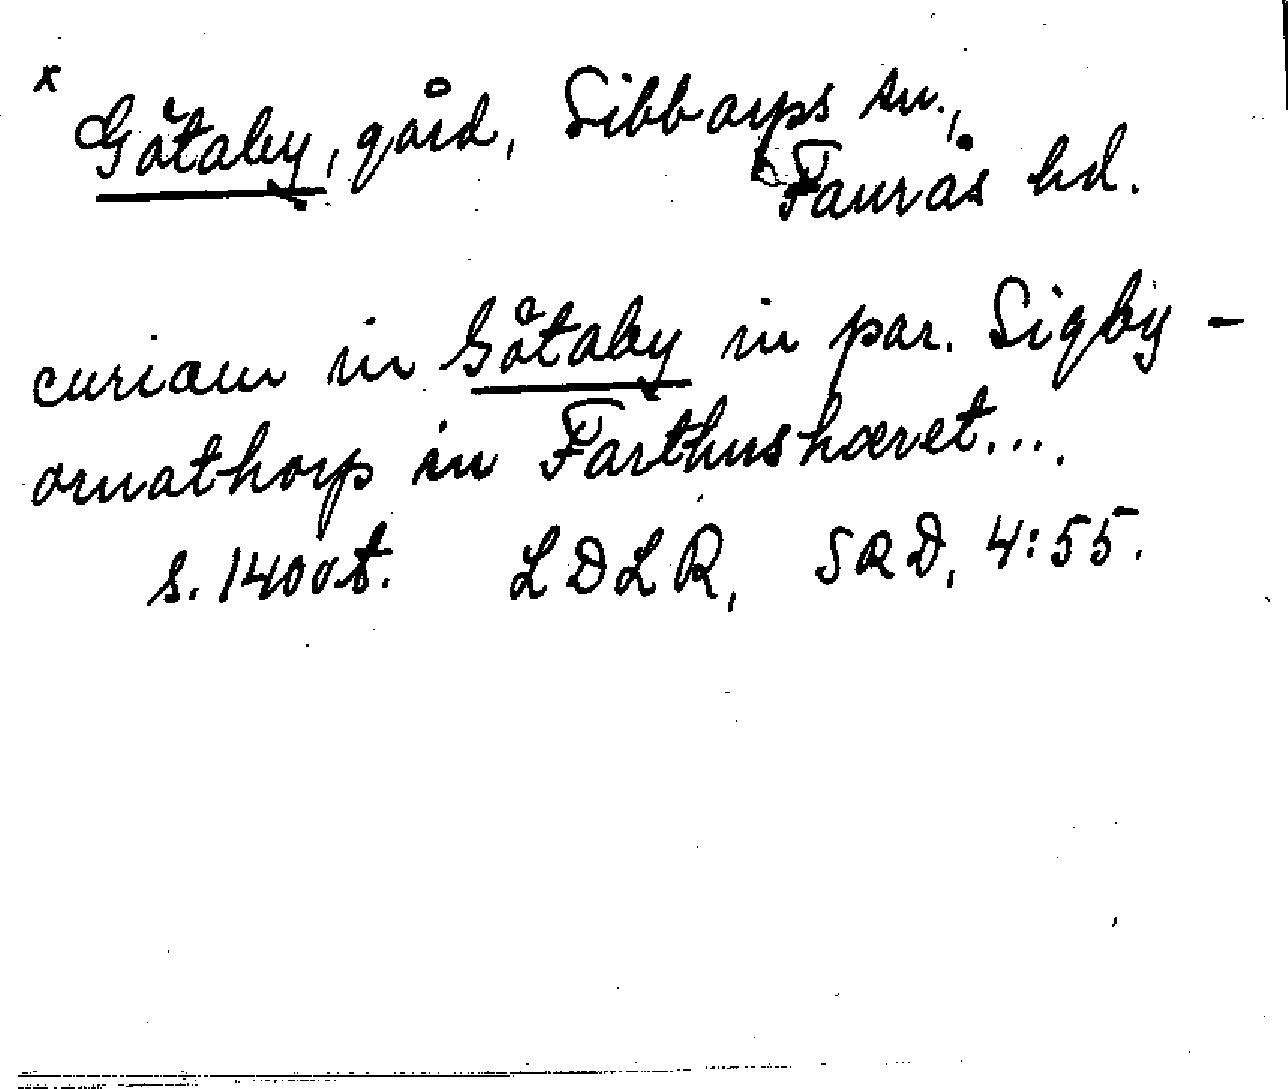 x Gåtaby, gård, Sibbarps sn.,
Faurås hd.
curiam in Gåtaby in par. Sigby-
ornathorp in Farthushæret....
s. 1400t. LDLR, SRD, 4:55.